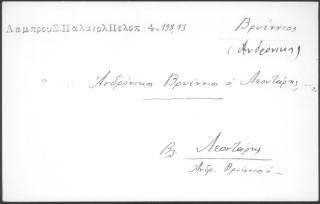 Λαμπρου Σ. Παλαιολ Πελοπ - 4, 198, 13
Βρυέννιος
(Ἀνδρόνικος)
"..... Ἀνδρόνικος Βρυέννιος ὁ Λεοντάρης ...."
Βλ. Λεοντάρης
Ἀνδρ. Βρυέννιος ὁ -